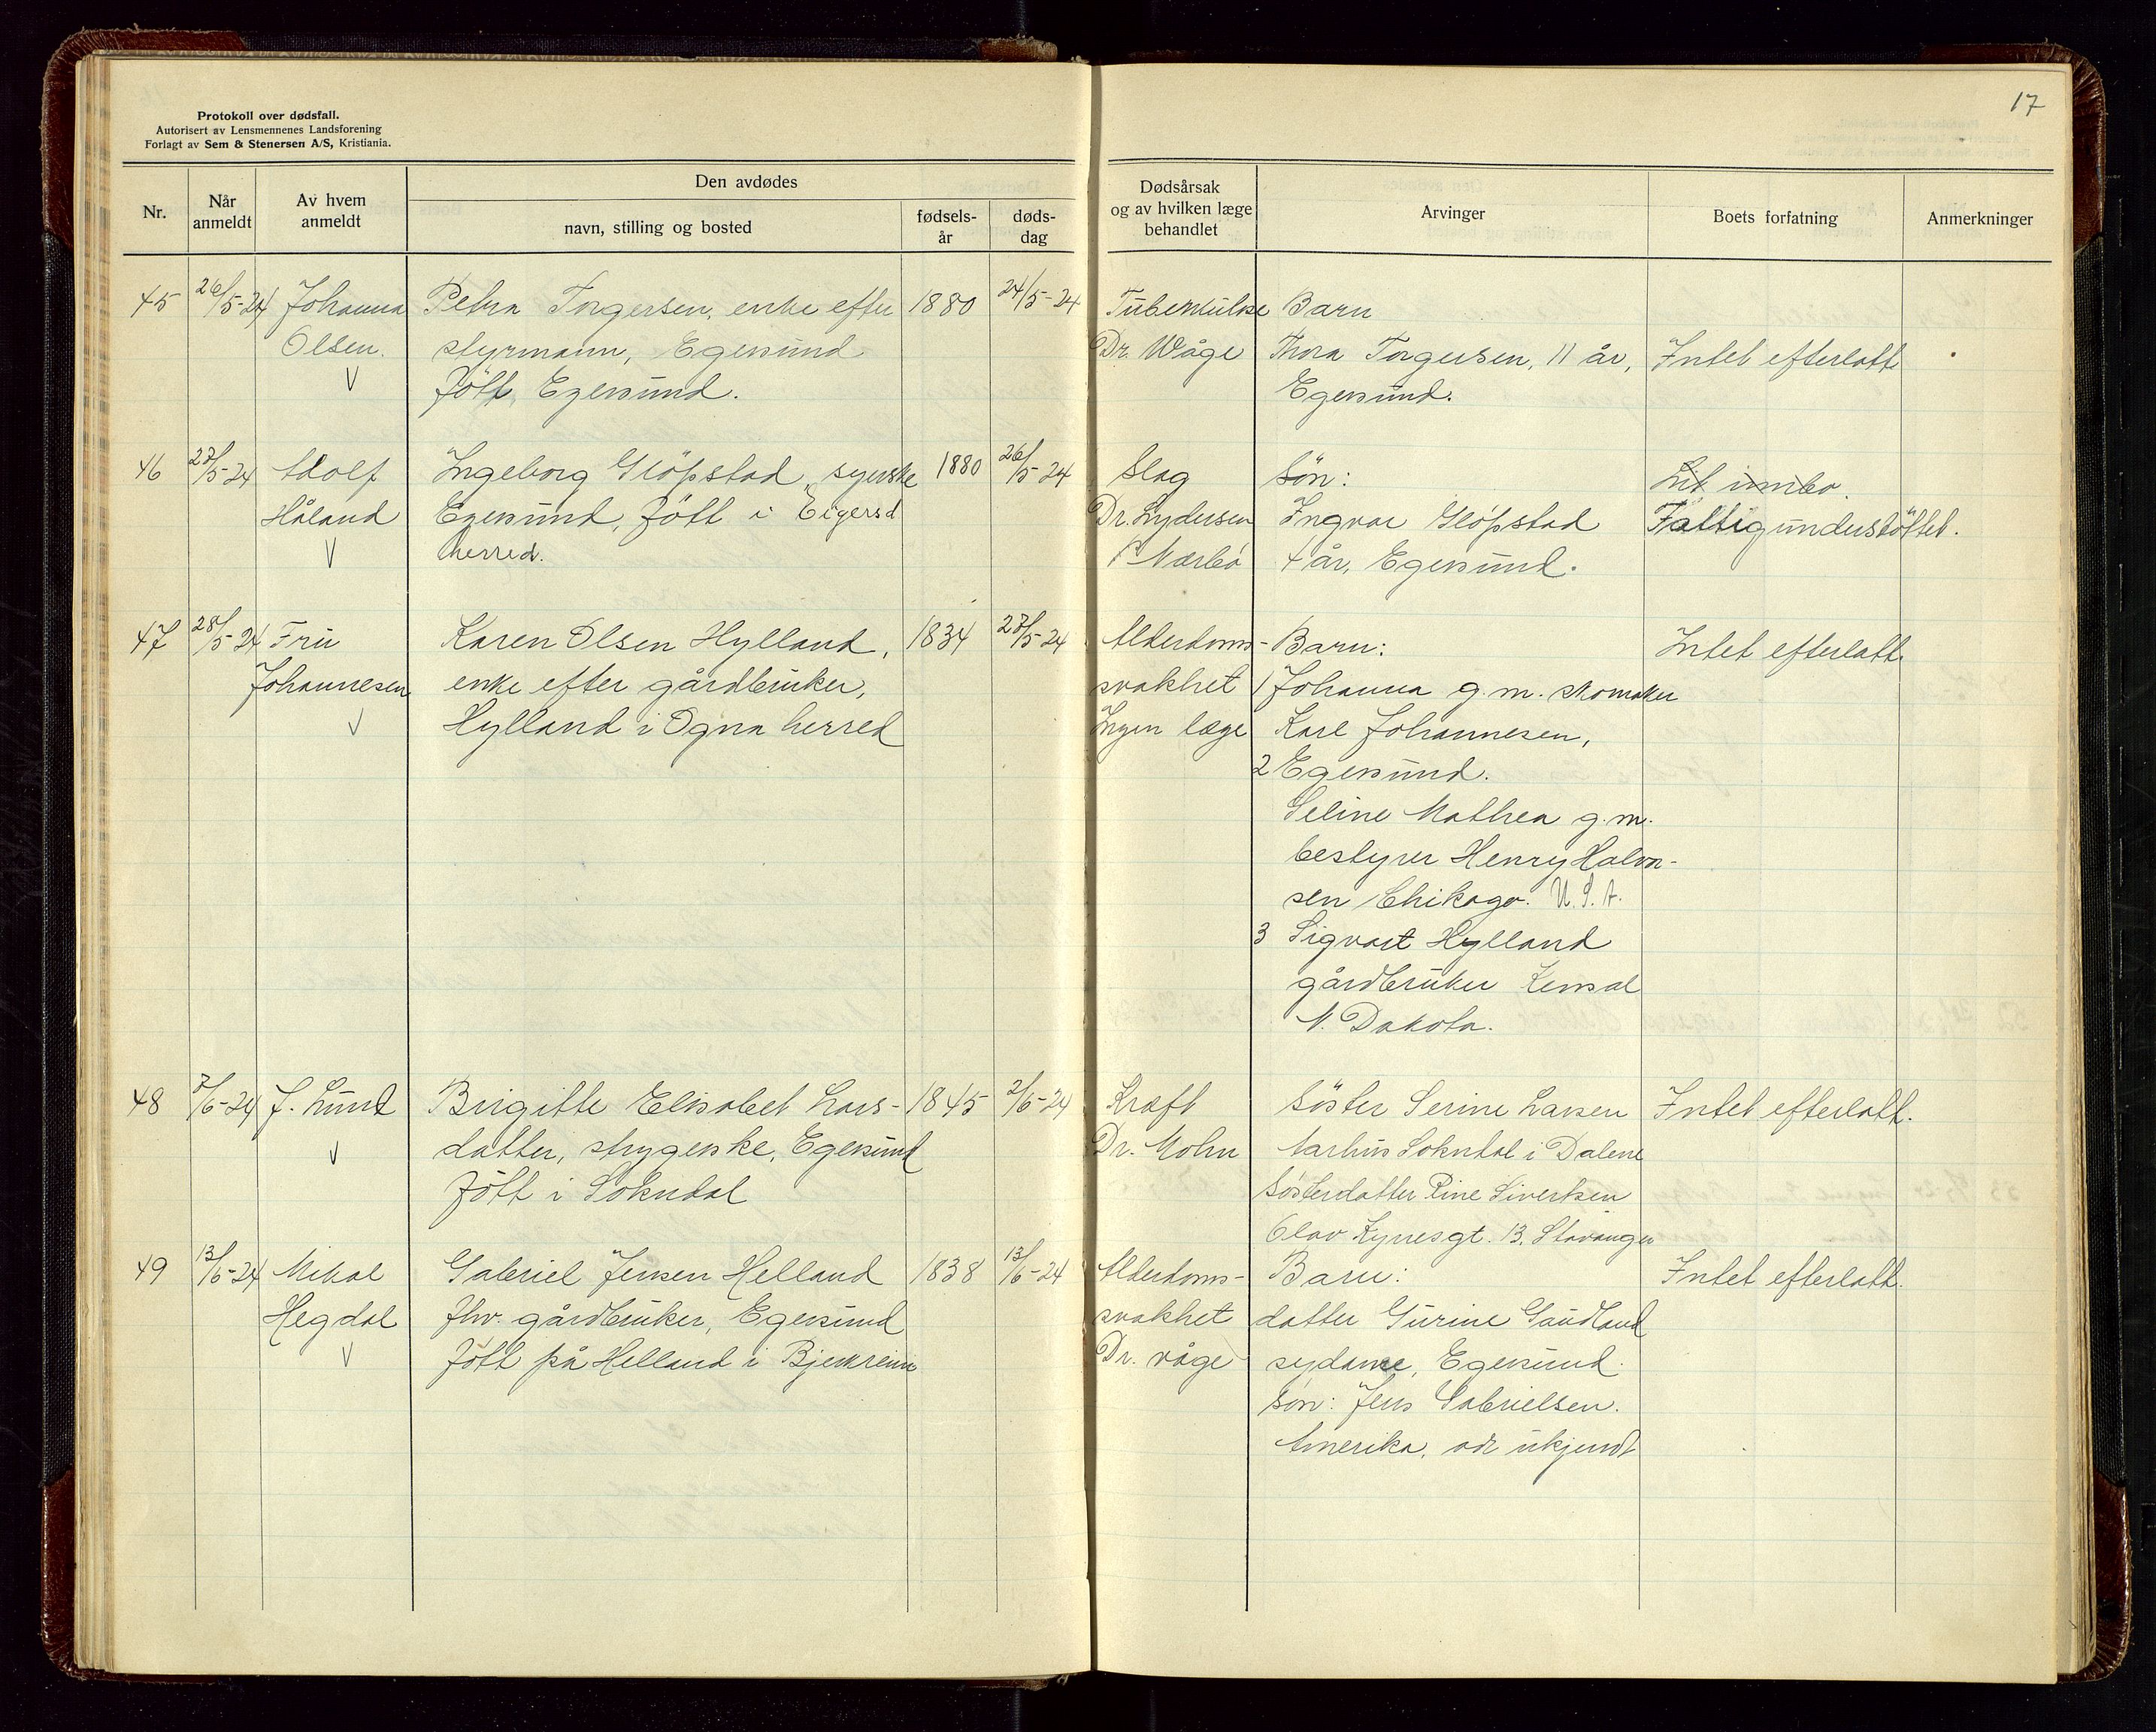 17
Protokoll over dødsfall.
Autorisert av Lensmennenes Landsforening
Forlagt av Sem & Stenersen A/S, Kristiania.
Nr.
Når anmeldt
Av hvem anmeldt
Den avdødes
navn, stilling og bosted
fødsels-år
døds-dag
Dødsårsak og av hvilken læge behandlet
Arvinger
Boets forfatning
Anmerkninger
45
26/5-24
Johanna
Olsen.
V
Petra Torgersen, enke efter
styrmann, Egersund
født, Egersund.
1880
24/5-24
Tuberkulose
Dr. Wåge
Barn
Thora Torgersen, 11 år,
Egersund.
Intet efterlatt
46
27/5-24
Adolf
Håland
V
Ingeborg Gløpstad, syerske
Egersund, født i Eigersd
herred.
1880
26/5-24
Slag
Dr. Lydersen
Nærbø
Søn:
Ingvar Gløpstad
4 år, Egersund.
Lit innbo.
Fattigunderstøttet.
47
28/5-24
Fru
Johannesen
V
Karen Olsen Hylland,
enke efter gårdbruker,
Hylland i Ogna herred
1834
27/5-24
Alderdoms-
svakhet
Ingen læge
Barn:
1 Johanna g.m. skomaker
Karl Johannesen,
2 Egersund.
Seline Mathea g.m.
bestyrer Henry Halvor-
sen Chikago. U.S.A.
3 Sigvart Hylland
gårdbruker Kensal
N. Dakota.
Intet efterlatt.
48
7/6-24
J. Lund
V
Birgitte Elisabet Lars-
datter, strygerske, Egersund
født i Sokndal
1845
2/6-24
Kræft
Dr. Mohn
Søster Serine Larsen
Aarhus Sokndal i Dalene
Søsterdatter Rine Sivertsen
Olav Kyrresgt. 13. Stavanger
Intet efterlatt.
49
13/6-24
Mikal
Hegdal
V
Gabriel Jensen Helland
fhv. gårdbruker, Egersund
født på Helland i Bjerkreim
1838
13/6-24
Alderdoms-
svakhet
Dr. våge
Barn:
datter Gurine Gaudland
sydame, Egersund.
søn: Jens Gabrielsen.
Amerika, adr ukjendt
Intet efterlatt.